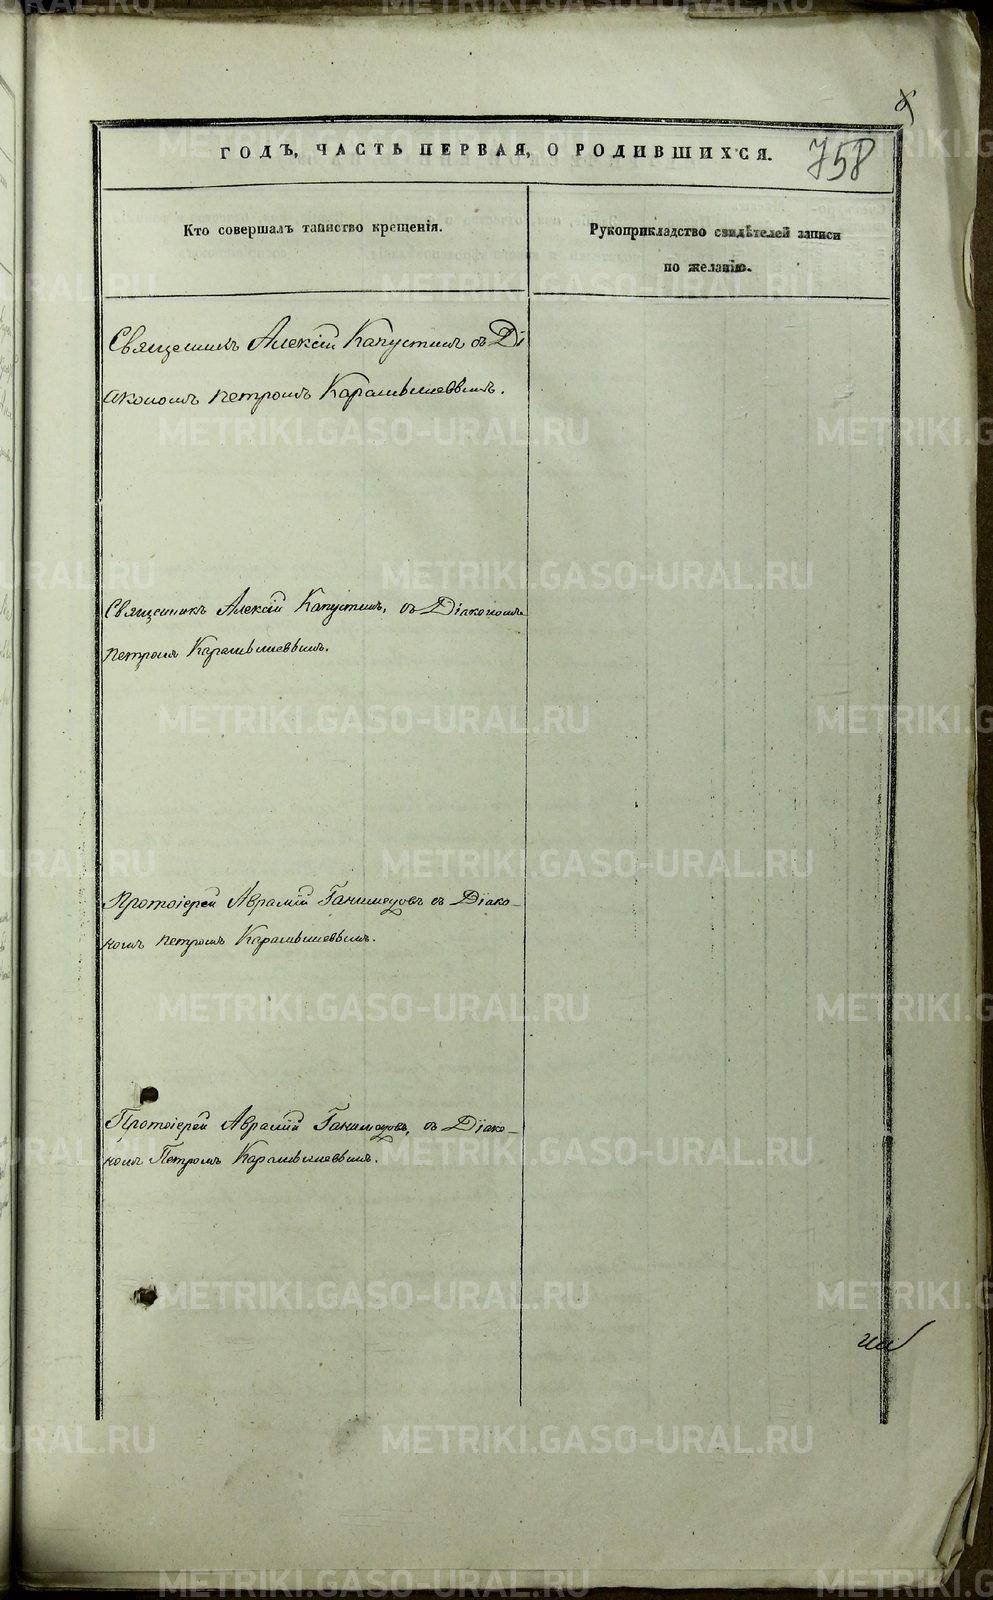 ГОДЪ, ЧАСТЬ ПЕРВАЯ, О РОДИВШИХСЯ.
758
Кто совершалъ таинство крещенія.
Рукоприкладство свидѣтелей записи
по желанію.
Священникъ Алексій Капустинъ съ Ді
акономъ Петромъ Карамышевымъ.
Священникъ Алексій Капустинъ, съ Діакономъ
Петромъ Карамышевымъ.
Протоіерей Аврамій Ганимедовъ съ Діако-
номъ Петромъ Карамышевымъ.
Протоіерей Аврамій Ганимедовъ, съ Діако-
номъ Петромъ Карамышевымъ.
METRIKI.GASO-URAL.RU